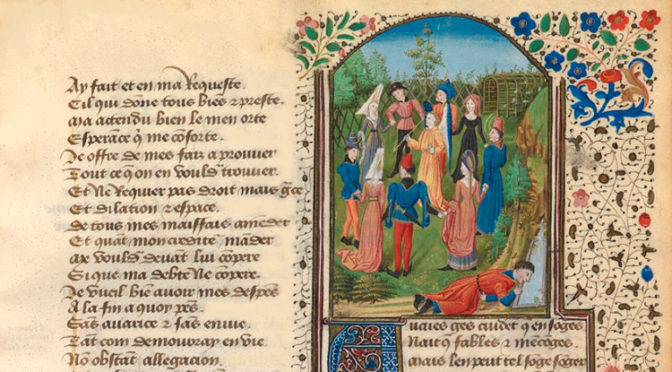 Ay fait et en ma Requeste.
Cil qui dōne tous biēs ⁊ preste.
Ma actendu bien le men orte
Esperāce q̄ me cōforte.
Je offre de mes faiz a prouver
Tout ce q̄ on en vould trouver.
Et Ne Requier pas droit mais grā̄ce
Et dilation ⁊ espace.
de tous mes meffais amēder
Et quāt mon credite māder
me vould devāt lui cōpere
Si que ma debte Ne cōpere
Je vueil biē avoir mes despēs
A la fin a quoy pēs.
Sās avarice ⁊ sās envie.
Tāt com demouray en vie
Nō obstāt allegacion
uaíes gēs cuidēt q̄ en sōges
Nait q̄ fables ⁊ mēcōges
Mais len peut tel sōge sōger